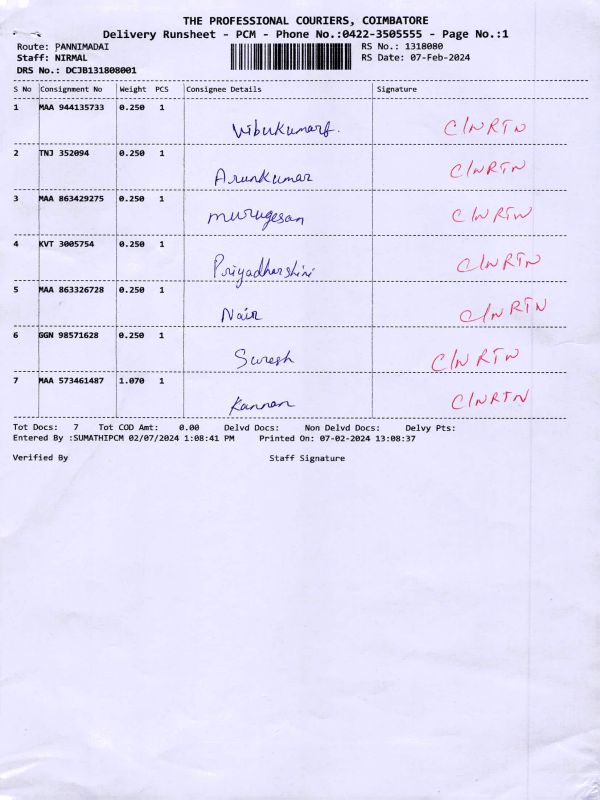 THE PROFESSIONAL COURIERS, COIMBATORE
Delivery Runsheet - PCM - Phone No.:0422-3505555 - Page No.:1
Route: PANNIMADAI RS No.: 1318080
Staff: NIRMAL RS Date: 07-Feb-2024
DRS No.: DCJB131808001
S No Consignment No Weight PCS Consignee Details Signature
1 MAA 944135733 0.250 1
Vibukumar C/N RTN
2 TNJ 352094 0.250 1
Arunkumar C/N RTN
3 MAA 863429275 0.250 1
murugesan C/N RTN
4 KVT 3005754 0.250 1
Priyadharshini C/N RTN
5 MAA 863326728 0.250 1
Nair C/N RTN
6 GGN 98571628 0.250 1
Suresh C/N RTN
7 MAA 573461487 1.070 1
Kannan C/N RTN
Tot Docs: 7 Tot COD Amt: 0.00 Delvd Docs: Non Delvd Docs: Delvy Pts:
Entered By :SUMATHIPCM 02/07/2024 1:08:41 PM Printed On: 07-02-2024 13:08:37
Verified By Staff Signature